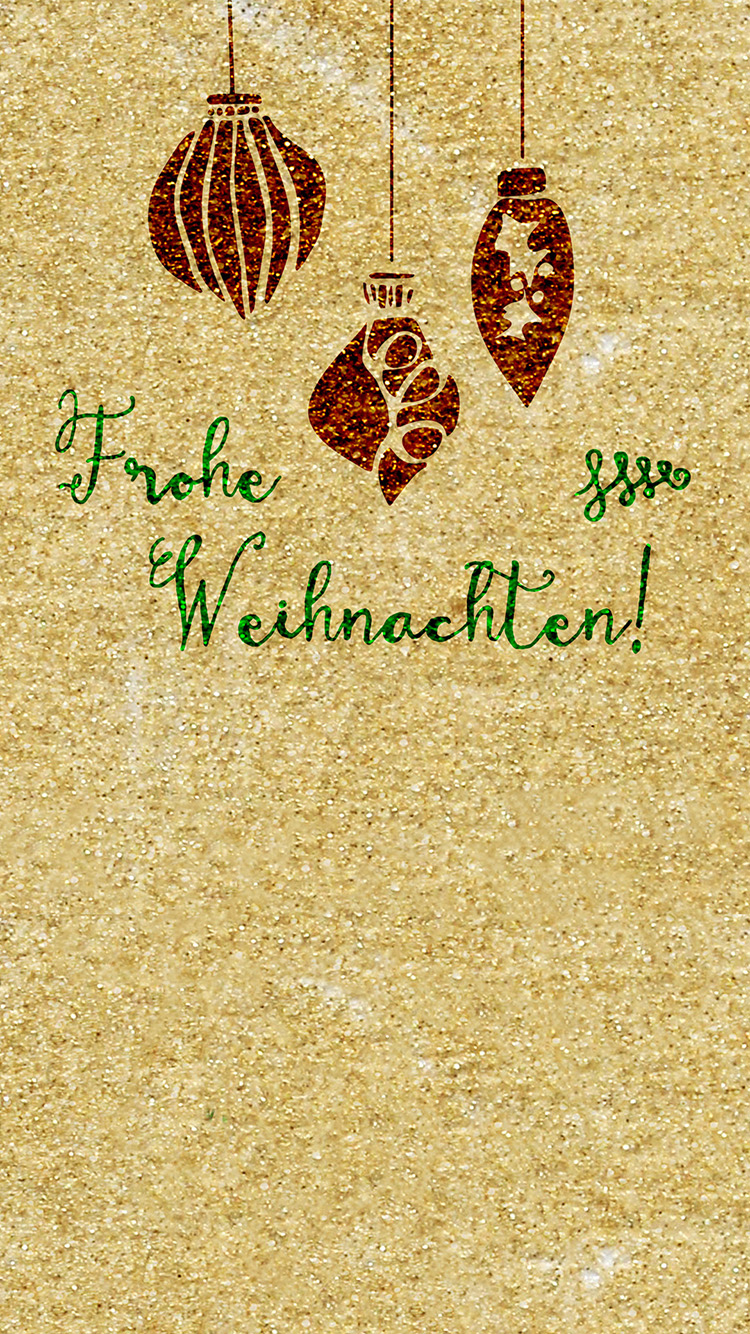 Frohe
Weihnachten!